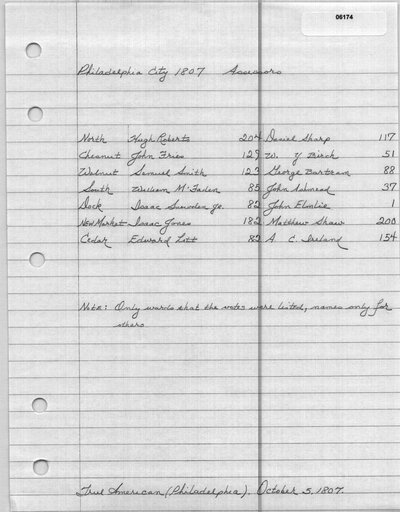 06174
Philadelphia City 1807 Assessors
North Hugh Roberts 204 Daniel Sharp 117
Chesnut John Fries 129 W. Y Birch 51
Walnut Samuel Smith 123 George Bartram 88
South William McFaden 85 John Ashmead 37
Dock Isaac Snowden Jr. 82 John Elmslie 1
New Market Isaac Jones 182 Matthew Shaw 200
Cedar Edward Lott 82 A C. Ireland 154
Note: Only wards that the votes were listed, names only for
others
True American (Philadelphia). October 5, 1807.